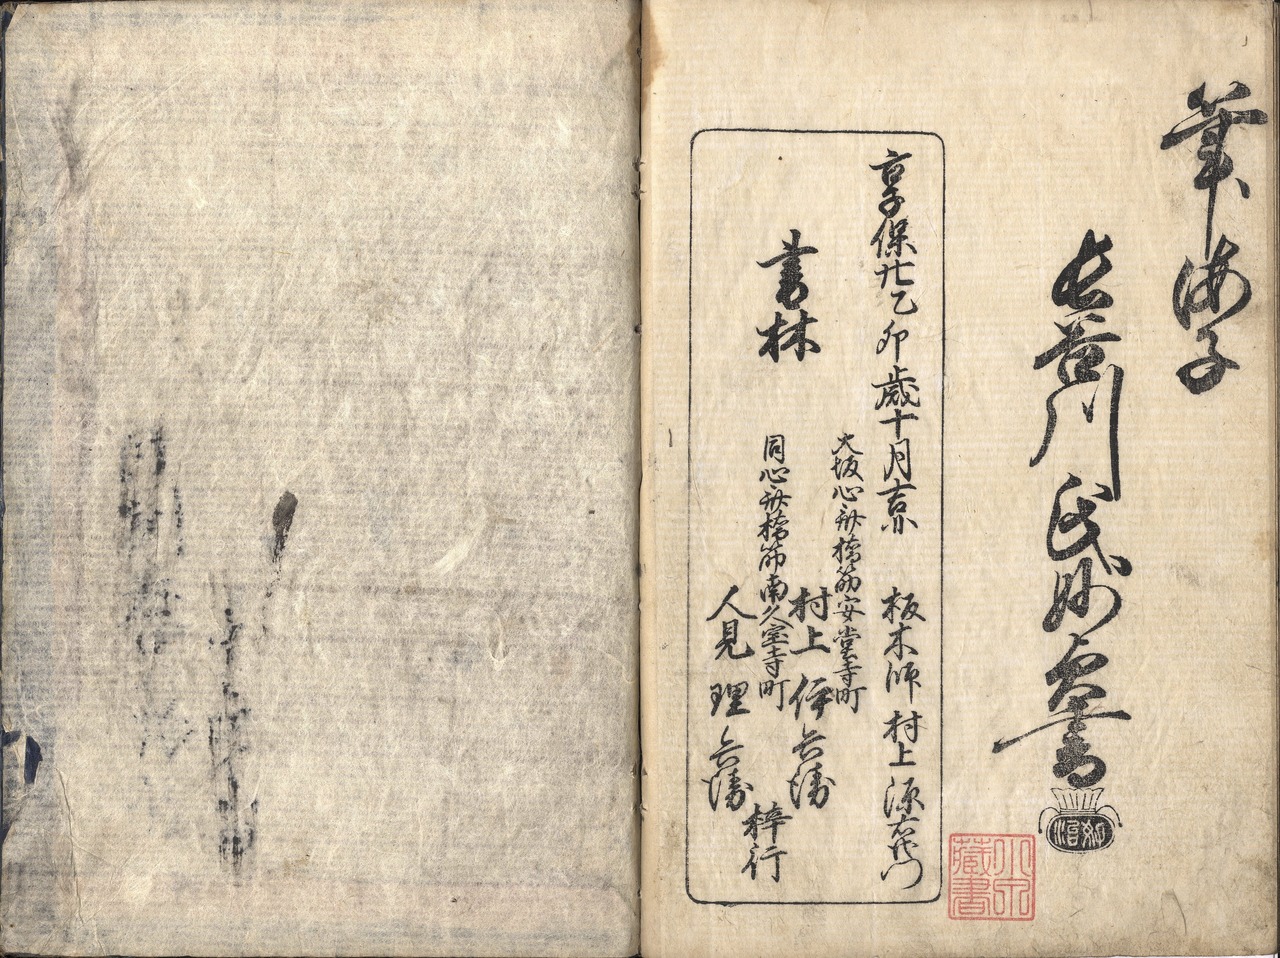 筆海子
長谷川氏妙貞書
享保廿乙卯歳十月吉京
板木師 村上源右衛門
大坂心斎橋筋安堂寺町
村上伊兵衛
書林
同心斎橋筋南久宝寺町
人見理兵衛
梓行
藏書